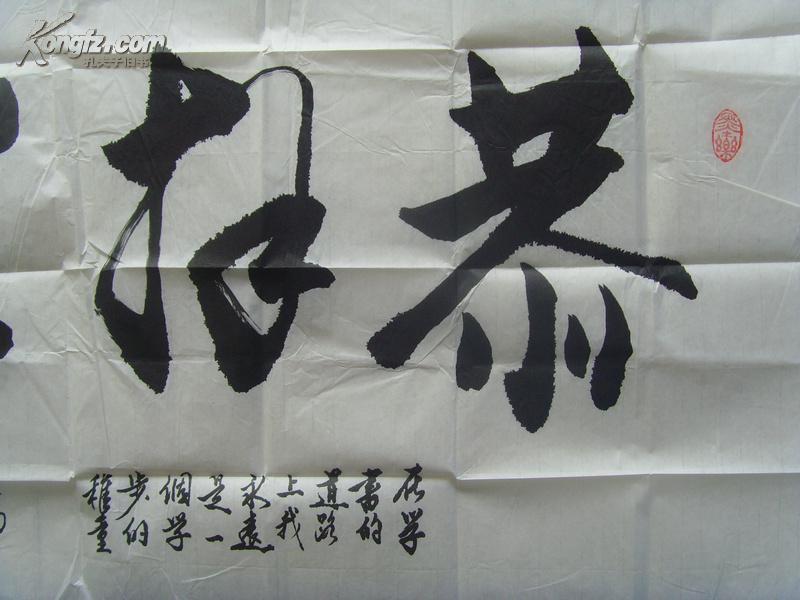 恭
在学
書的
道路
上我
永遠
是一
個学
步的
稚童
Kongfz.com
孔夫子旧书